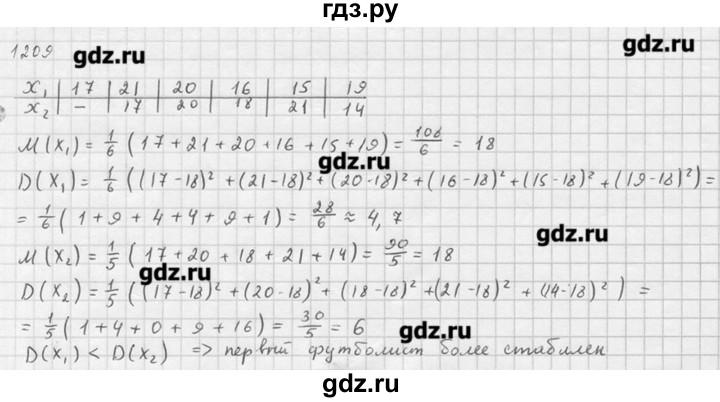 гдз.ру
1209
gdz.ru
gdz.ru
x₁ | 17 | 21 | 20 | 16 | 15 | 19
x₂ | – | 17 | 20 | 18 | 21 | 14
M(x₁) = 1/6 (17+21+20+16+15+19) = 108/6 = 18
gdz.ru
D(x₁) = 1/6 ((17-18)² + (21-18)² + (20-18)² + (16-18)² + (15-18)² + (19-18)²) =
= 1/6 (1+9+4+4+9+1) = 28/6 ≈ 4,7
gdz.ru
M(x₂) = 1/5 (17+20+18+21+14) = 90/5 = 18
gdz.ru
D(x₂) = 1/5 ((17-18)² + (20-18)² + (18-18)² + (21-18)² + (14-18)²) =
= 1/5 (1+4+0+9+16) = 30/5 = 6
gdz.ru
D(x₁) < D(x₂) => первый футболист более стабилен
gdz.ru